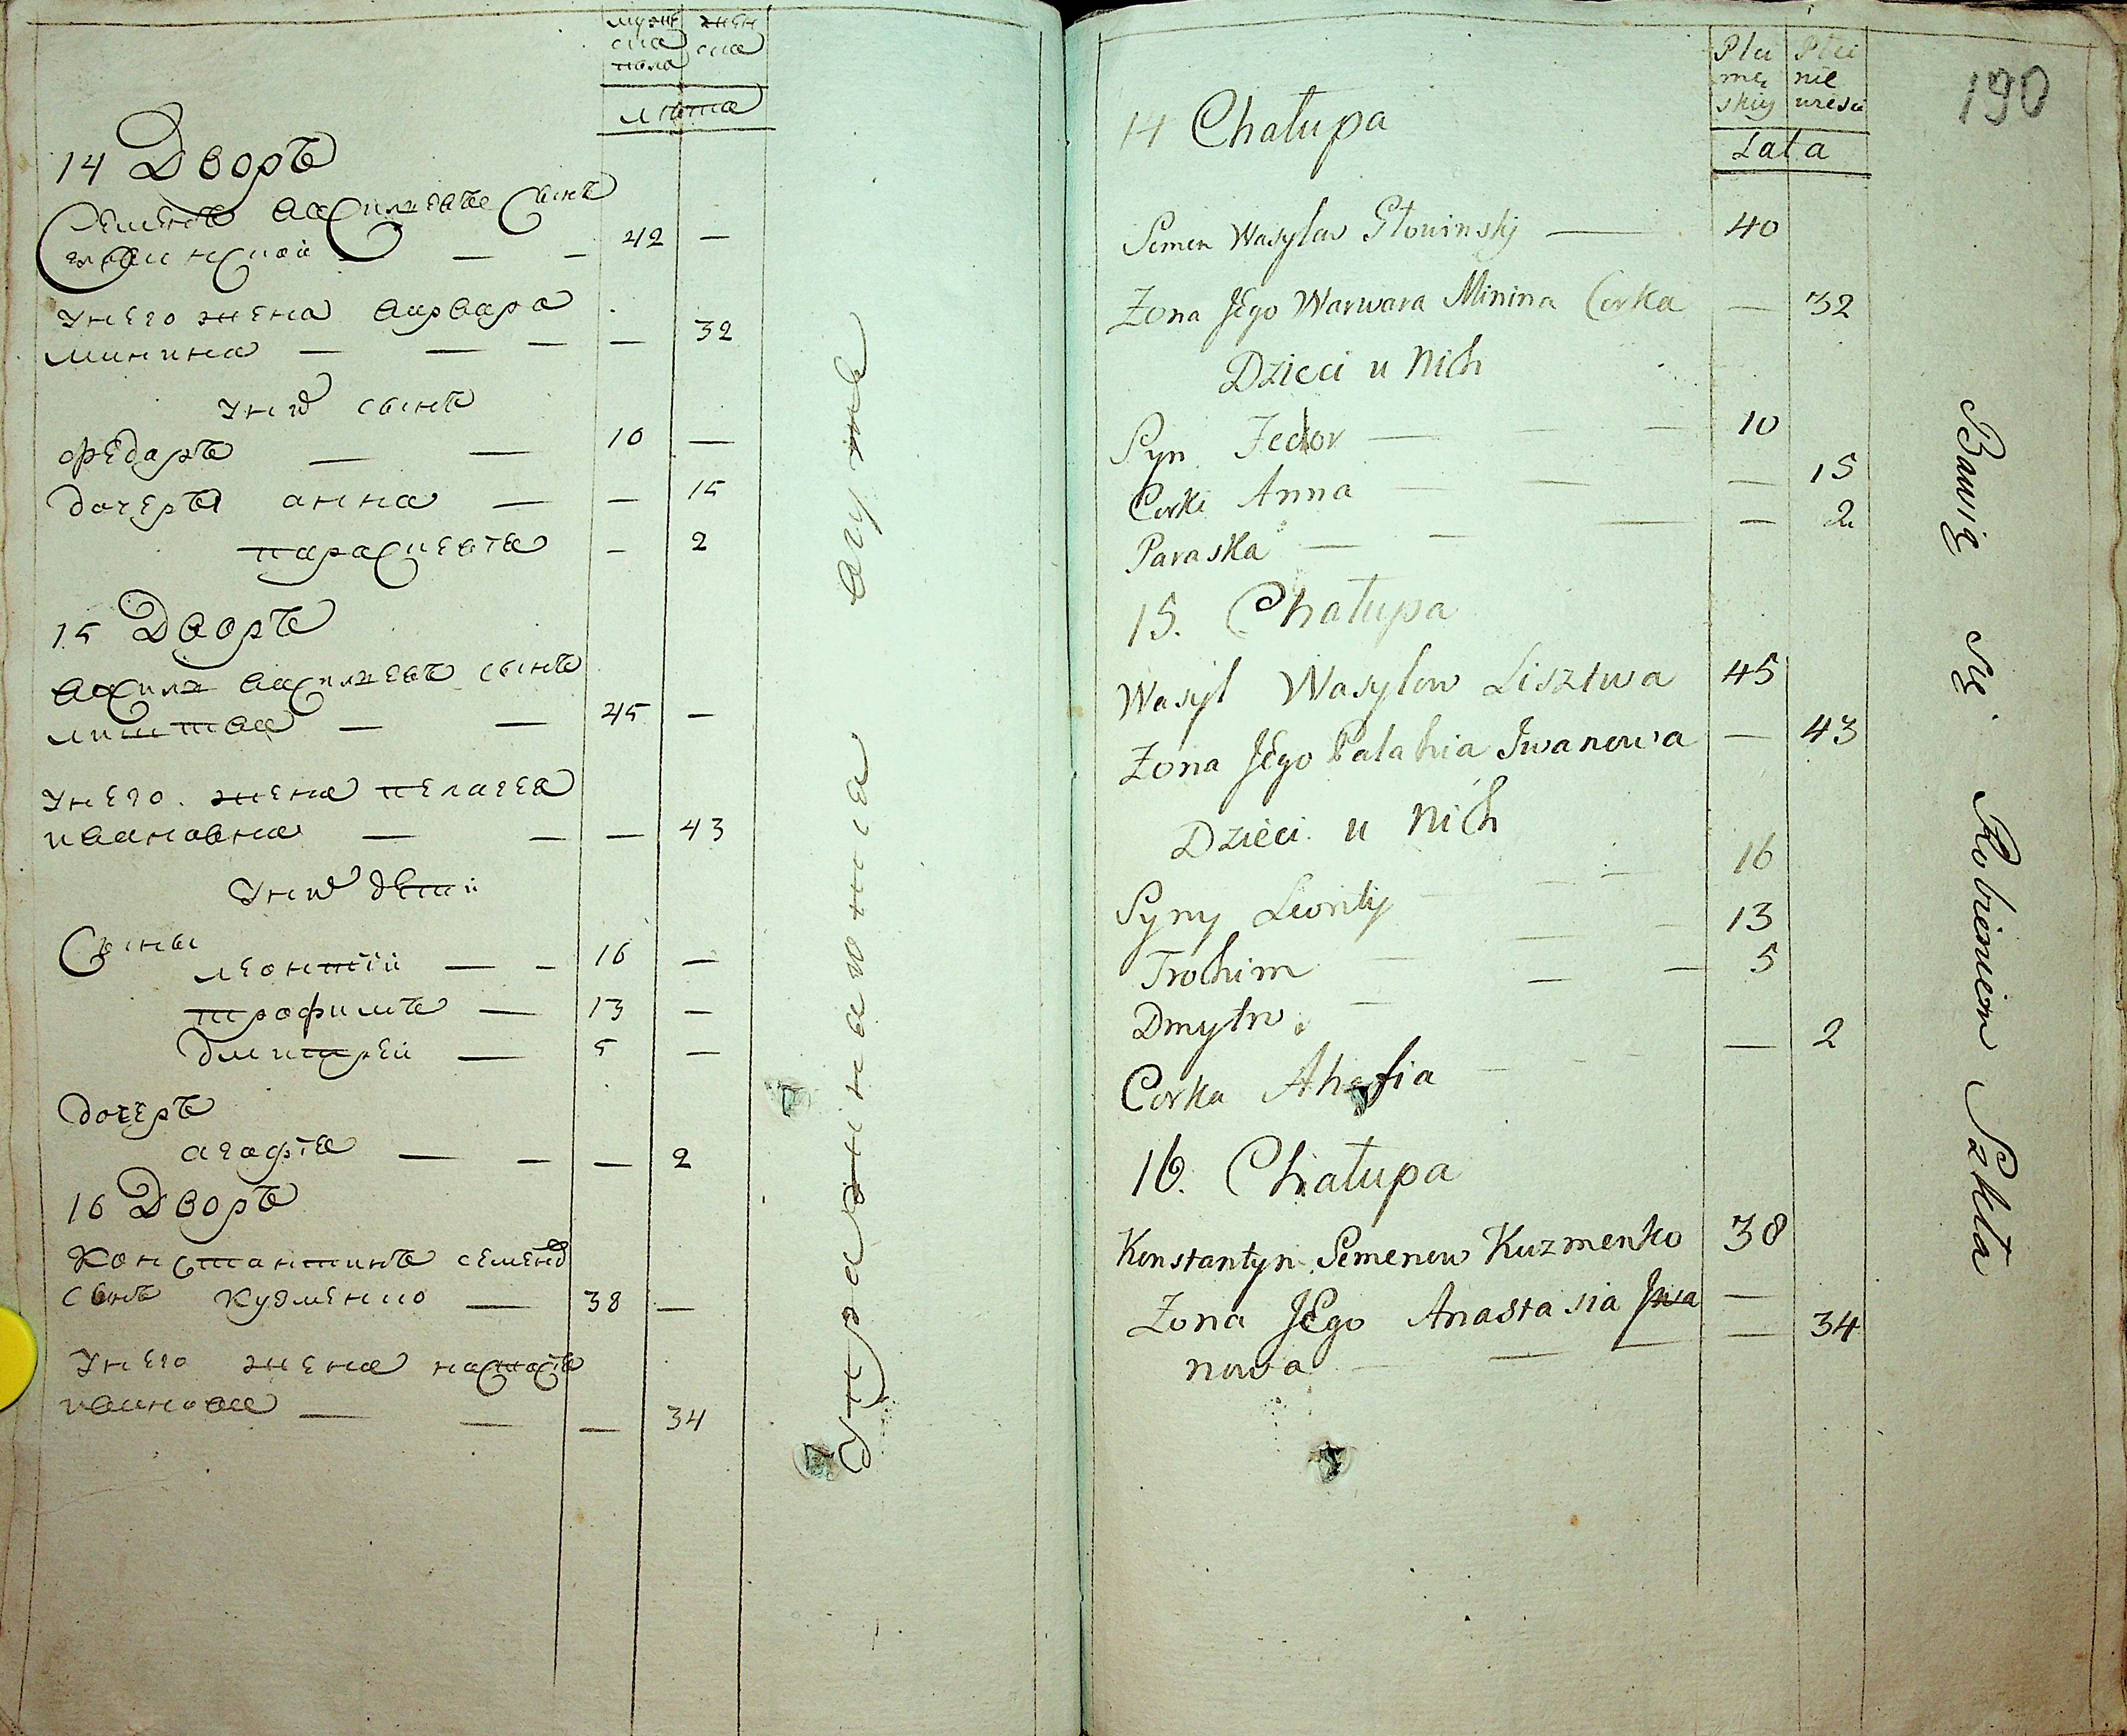 мужска пола
женска
лѣта
14 Дворъ
Семенъ Василиевъ Сынъ
42 —
Унего жена Варвара
Минина — — — — 32
Унихъ сынъ
Федаръ — — 10 —
дочеры анна — — 15
параскевіа — 2
15 Дворъ
Василій Василиевъ сынъ
лиштва — — 45 —
Унего жена пелагеа
ивановна — — — 43
Унихъ дѣти
Сыны
леонтій — — 16 —
трофимъ — 13 —
дмитрей — 5 —
дочеръ
агафіа — — — 2
16 Дворъ
Константинъ семенов
сынъ Кузменко — 38 —
Унего жена настасіа
иванова — — — 34
Упражняютца
190
Płci męskiy
Płci niewiesci
Lata
14 Chałupa
Semen Wasylow Słowinskj — 40
Zona Jego Warwara Minina Corka — 32
Dzieci u Nich
Syn Fedor — — — 10
Corki Anna — — — 15
Paraska — — — — 2
15. Chałupa
Wasyl Wasylow Lisztwa 45
Zona Jego Palahia Jwanowa — 43
Dzieci u Nich
Syny Leonty — — — 16
Trohim — — — 13
Dmytro — — — 5
Corka Ahafia — — 2
16. Chałupa
Konstantyn Semenow Kuzmenko 38
Zona JEgo Anastasia Jwa —
nowa — — — — 34
Bawią Się Robieniem Szkła